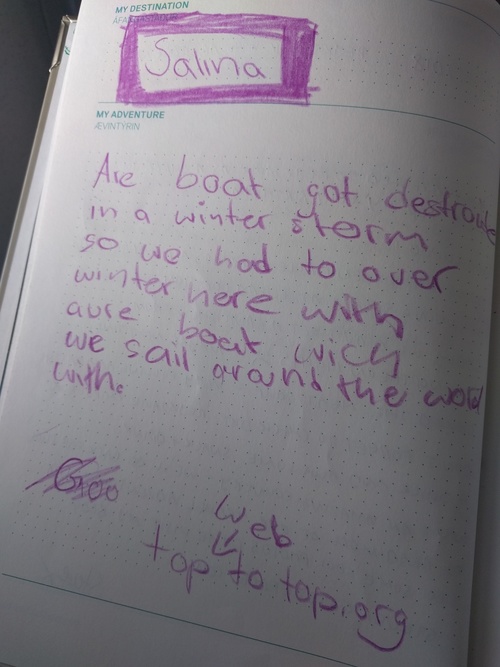 MY DESTINATION
Salina
MY ADVENTURE
ÆVINTÝRIN
Are boat got destroute
in a winter storm
so we had to over
winter here with
aure boat wich
we sail around the world
with.
web
top to top.org